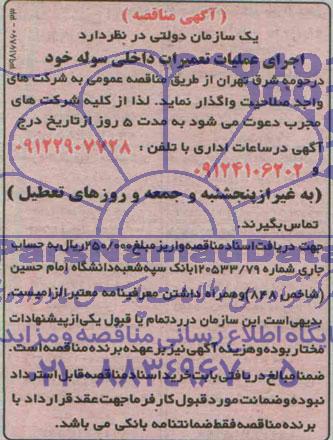 ( آگهی مناقصه )
یک سازمان دولتی در نظر دارد
اجرای عملیات تعمیرات داخلی سوله خود
در حومه شرق تهران از طریق مناقصه عمومی به شرکت های
واجد صلاحیت واگذار نماید. لذا از کلیه شرکت های
مجرب دعوت می شود به مدت ۵ روز از تاریخ درج
آگهی در ساعات اداری با تلفن : ۰۹۱۲۲۹۰۷۷۲۸
و ۰۹۱۲۴۱۰۶۲۰۲
(به غیر از پنجشنبه و جمعه و روزهای تعطیل )
تماس بگیرند.
جهت دریافت اسناد مناقصه واریز مبلغ ۲۵۰/۰۰۰ ریال به حساب
جاری شماره ۱۲۰۵۳۳/۷۹ بانک سپه شعبه دانشگاه امام حسین
(شاخص ۸۴۸) و همراه داشتن معرفینامه معتبر الزامیست.
بدیهی است این سازمان در رد تمام یا قبول یکی از پیشنهادات
مختار بوده و هزینه آگهی نیز بر عهده برنده مناقصه است.
ضمنا مبالغ دریافتی بابت خرید اسناد مناقصه قابل استرداد
نبوده و ضمانت مورد قبول کارفرما جهت عقد قرارداد با
برنده مناقصه فقط ضمانتنامه بانکی می باشد.
ParsNamadData
پایگاه اطلاع رسانی مناقصه و مزایده
۰۲۱-۸۸۳۴۹۶۷۰-۵